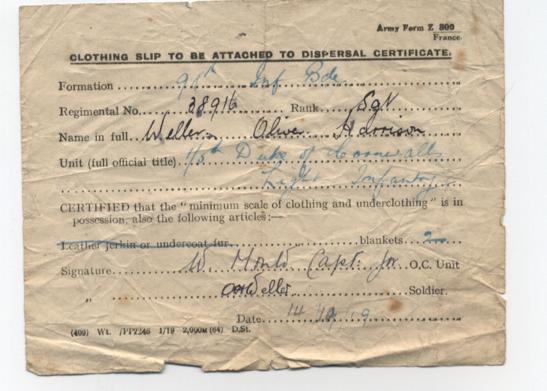 Army Form Z 800
France.
CLOTHING SLIP TO BE ATTACHED TO DISPERSAL CERTIFICATE.
Formation Inf Bde
Regimental No. 38916 Rank Sgt
Name in full Weller Oliver Harrison
Unit (full official title) 1/5th Duke of Cornwalls
Light Infantry
CERTIFIED that the "minimum scale of clothing and underclothing" is in
possession, also the following articles:—
Leather jerkin or undercoat fur blankets
Signature W. Capt. for O.C. Unit
" OHWeller Soldier.
Date 14 19
(409) Wt. /PP2246 1/19 2,000M (64) D.St.